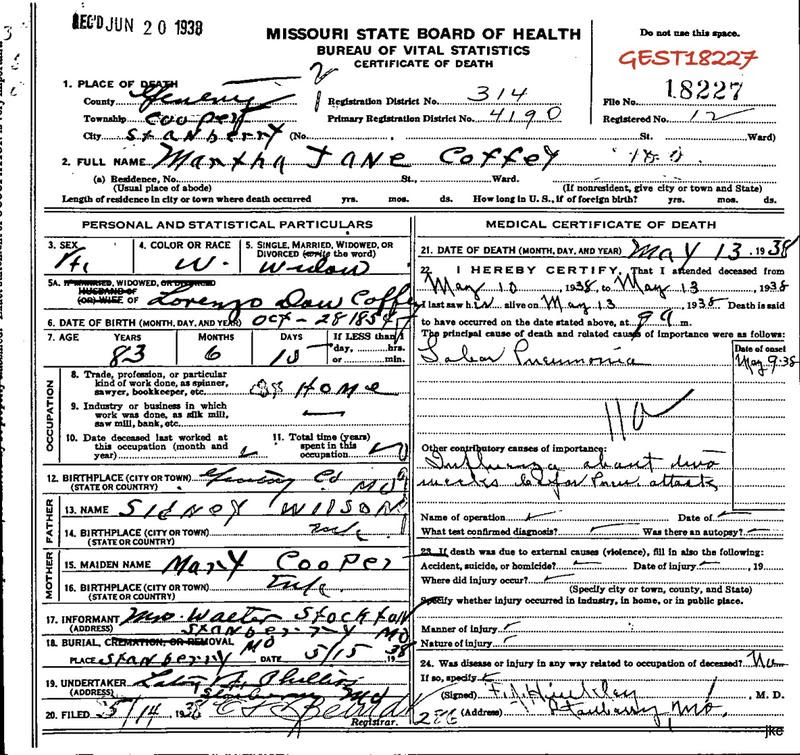 REC'D JUN 20 1938
MISSOURI STATE BOARD OF HEALTH
BUREAU OF VITAL STATISTICS
CERTIFICATE OF DEATH
Do not use this space.
GEST18227
1. PLACE OF DEATH
County Gentry Registration District No. 314 File No. 18227
Township Cooper Primary Registration District No. 4190 Registered No. 12
City Stanberry (No. St. Ward)
2. FULL NAME Martha Jane Coffey
(a) Residence, No. St., Ward.
(Usual place of abode) (If nonresident, give city or town and State)
Length of residence in city or town where death occurred yrs. mos. ds. How long in U. S., if of foreign birth? yrs. mos. ds.
PERSONAL AND STATISTICAL PARTICULARS
3. SEX 4. COLOR OR RACE 5. SINGLE, MARRIED, WIDOWED, OR DIVORCED (write the word)
W. Widow
5A. IF MARRIED, WIDOWED, OR DIVORCED
HUSBAND OF
(OR) WIFE OF Lorenzo Dow Coffey
6. DATE OF BIRTH (MONTH, DAY, AND YEAR) Oct - 28 1854
7. AGE YEARS MONTHS DAYS If LESS than 1 day, hrs. or min.
83 6
OCCUPATION
8. Trade, profession, or particular kind of work done, as spinner, sawyer, bookkeeper, etc. Home
9. Industry or business in which work was done, as silk mill, saw mill, bank, etc.
10. Date deceased last worked at this occupation (month and year)
11. Total time (years) spent in this occupation
12. BIRTHPLACE (CITY OR TOWN) Gentry Co
(STATE OR COUNTRY) Mo
FATHER
13. NAME Sidney Wilson
14. BIRTHPLACE (CITY OR TOWN)
(STATE OR COUNTRY)
MOTHER
15. MAIDEN NAME Mary Cooper
16. BIRTHPLACE (CITY OR TOWN)
(STATE OR COUNTRY)
17. INFORMANT Mrs. Walter Stockton
(ADDRESS) Stanberry Mo
18. BURIAL, CREMATION, OR REMOVAL Mo
PLACE Stanberry DATE 5/15 1938
19. UNDERTAKER Phillips
(ADDRESS) Stanberry Mo
20. FILED 5/14 1938
Registrar.
MEDICAL CERTIFICATE OF DEATH
21. DATE OF DEATH (MONTH, DAY, AND YEAR) May 13 . 1938
22. I HEREBY CERTIFY, That I attended deceased from
May 10, 1938, to May 13, 1938
I last saw h alive on May 13, 1938 Death is said
to have occurred on the date stated above, at m.
The principal cause of death and related causes of importance were as follows:
Date of onset
Lobar Pneumonia May 9 38
Other contributory causes of importance:
Influenza about two
weeks before Pneu attack
Name of operation Date of
What test confirmed diagnosis? Was there an autopsy?
23. If death was due to external causes (violence), fill in also the following:
Accident, suicide, or homicide? Date of injury , 19
Where did injury occur?
(Specify city or town, county, and State)
Specify whether injury occurred in industry, in home, or in public place.
Manner of injury
Nature of injury
24. Was disease or injury in any way related to occupation of deceased? No
If so, specify
(Signed) Hinkley, M. D.
(Address) Stanberry Mo.
jkc